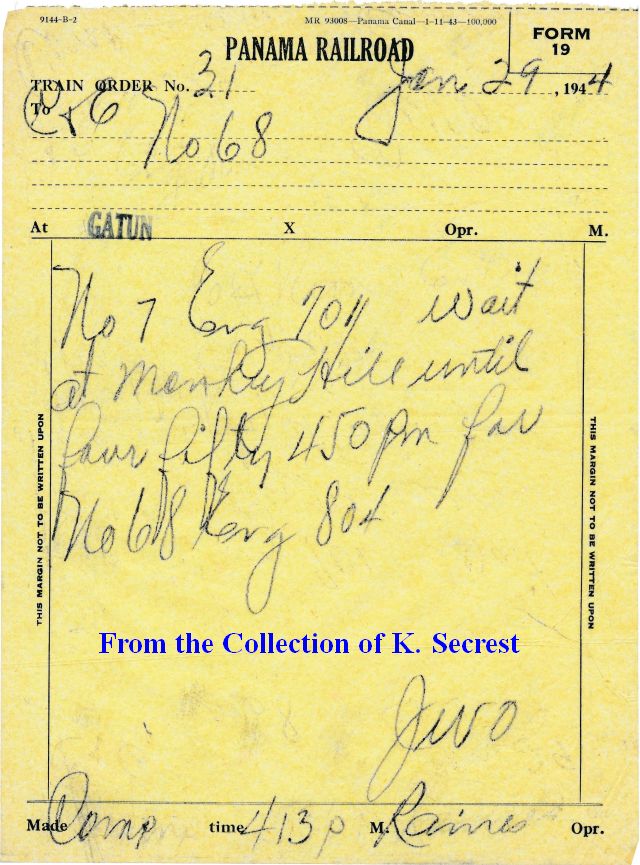 9144-B-2
MR 93008—Panama Canal—1-11-43—100,000
FORM 19
PANAMA RAILROAD
TRAIN ORDER No. 31 Jan 29, 1944
To C&E
No 68
At GATUN X Opr. M.
No 7 Eng 701 wait
at Monkey Hill until
four fifty 450 pm for
No 68 Eng 804
THIS MARGIN NOT TO BE WRITTEN UPON
THIS MARGIN NOT TO BE WRITTEN UPON
From the Collection of K. Secrest
JWO
Made Comp time 413 p M. Raines Opr.